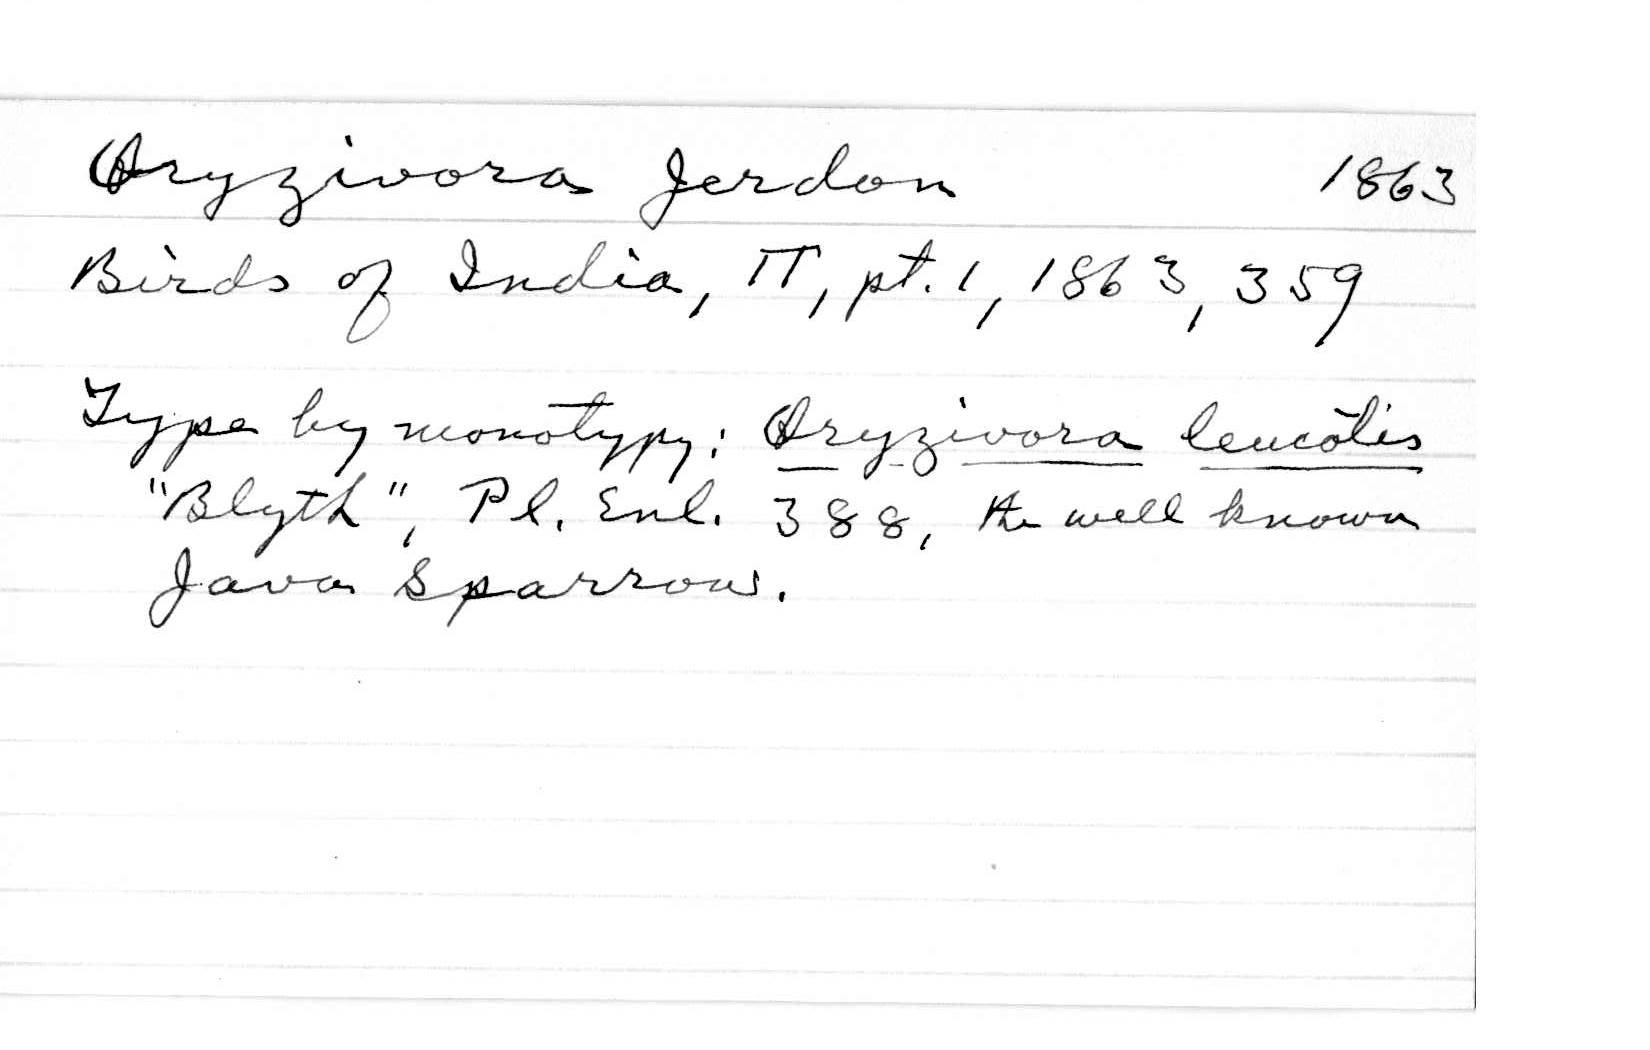 Oryzivora Jerdon 1863
Birds of India, II, pt. 1, 1863, 359
Type by monotypy: Oryzivora leucotis
"Blyth", Pl. Enl. 388, the well known
Java Sparrow.